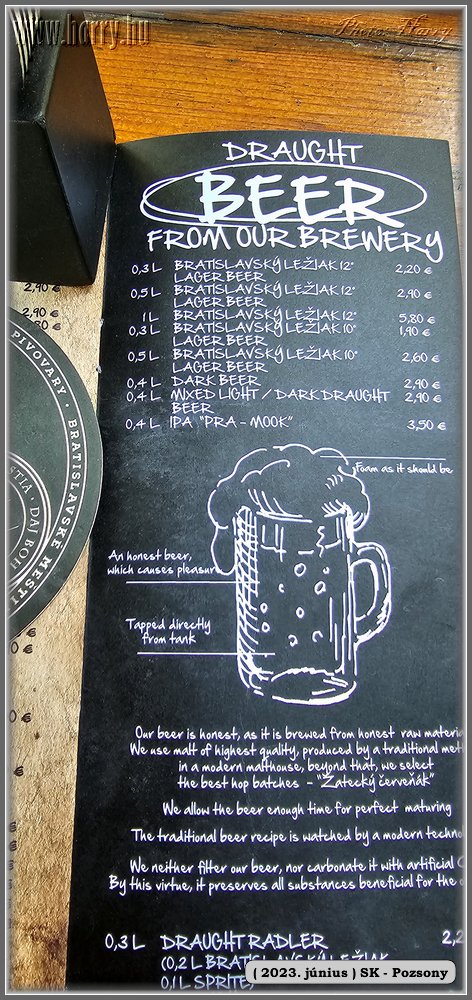 www.harry.hu
Photo: Harry
DRAUGHT
BEER
FROM OUR BREWERY
0,3 L BRATISLAVSKÝ LEŽIAK 12° 2,20 €
LAGER BEER
0,5 L BRATISLAVSKÝ LEŽIAK 12° 2,90 €
LAGER BEER
1 L BRATISLAVSKÝ LEŽIAK 12° 5,80 €
0,3 L BRATISLAVSKÝ LEŽIAK 10° 1,90 €
LAGER BEER
0,5 L BRATISLAVSKÝ LEŽIAK 10° 2,60 €
LAGER BEER
0,4 L DARK BEER 2,90 €
0,4 L MIXED LIGHT / DARK DRAUGHT 2,90 €
BEER
0,4 L IPA "PRA - MOOK" 3,50 €
Foam as it should be
An honest beer,
which causes pleasure
Tapped directly
from tank
Our beer is honest, as it is brewed from honest raw materia
We use malt of highest quality, produced by a traditional met
in a modern malthouse, beyond that, we select
the best hop batches - "Žatecký červeňák"
We allow the beer enough time for perfect maturing
The traditional beer recipe is watched by a modern techno
We neither filter our beer, nor carbonate it with artificial C
By this virtue, it preserves all substances beneficial for the
0,3 L DRAUGHT RADLER 2,2
(0,2 L BRATISLAVSKÝ LEŽIAK
0,1 L SPRITE)
2,90 €
2,90 €
PIVOVARY · BRATISLAVSKÉ MESTI
( 2023. június ) SK - Pozsony